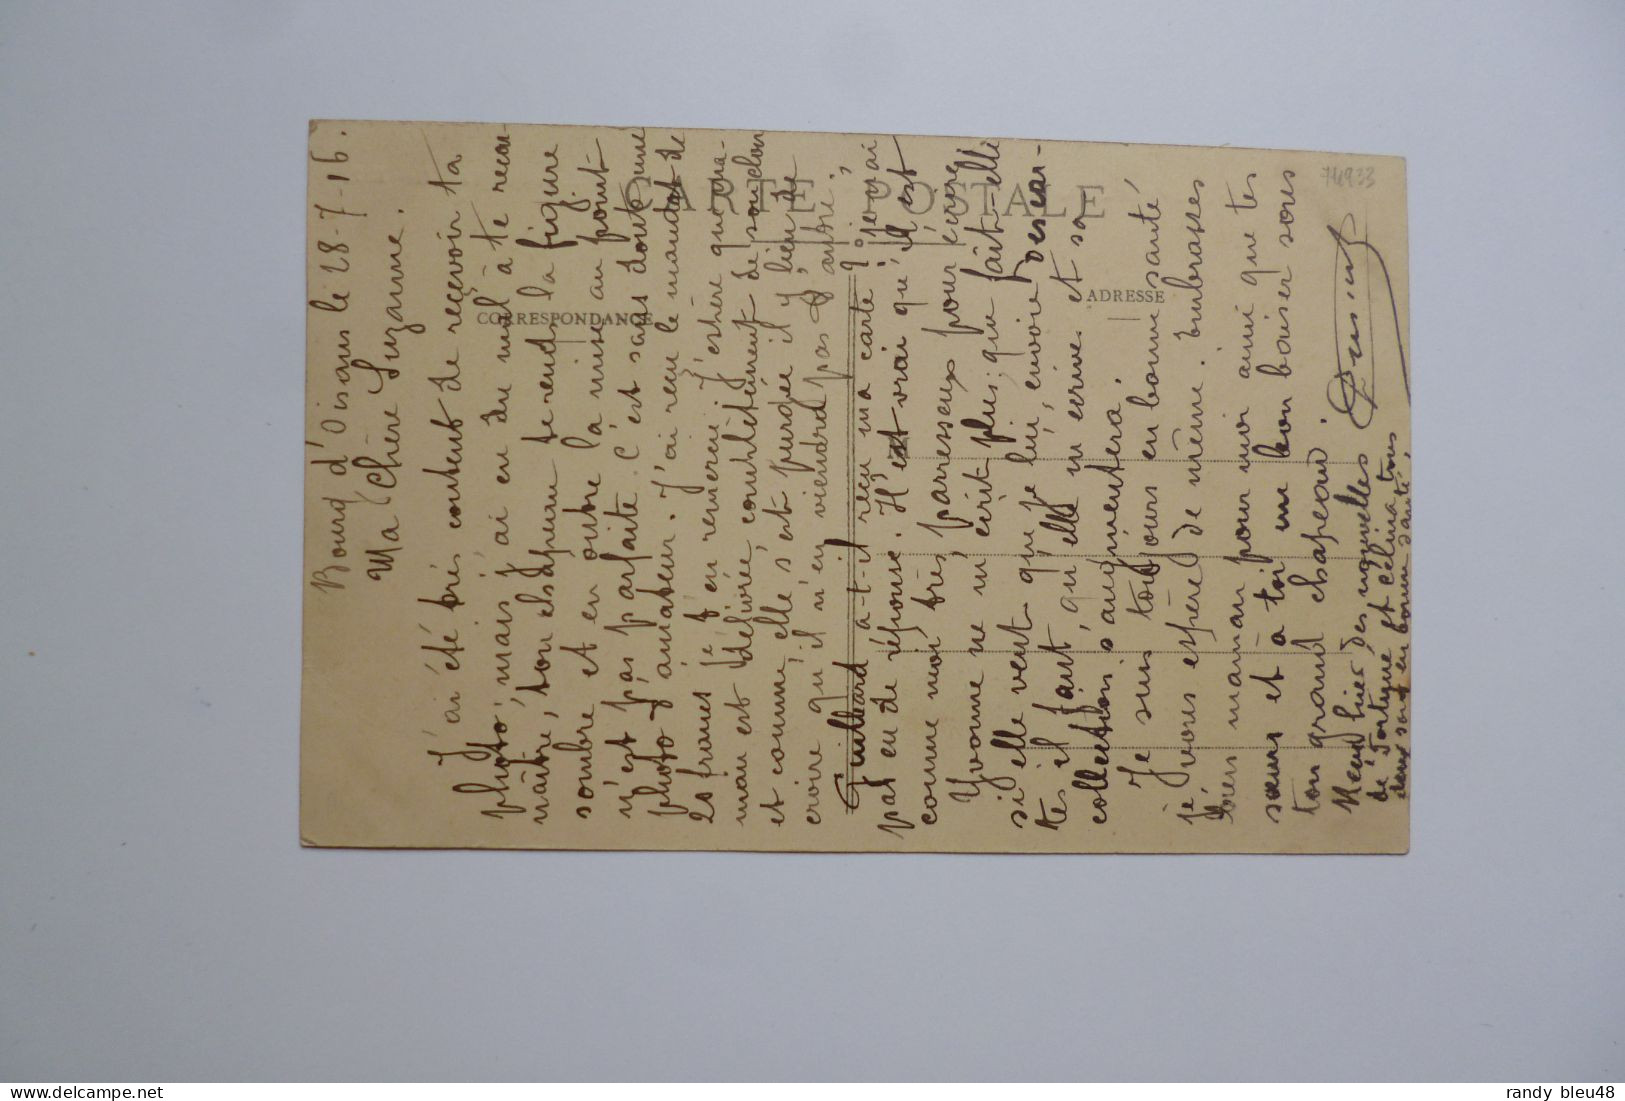 Bourg d'Oisans le 28-7-16.
Ma Chère Suzanne.
J'ai été très content de recevoir ta
photo, mais j'ai eu du mal à te recon-
naître, ton chapeau te rends la figure
sombre et en outre la mise au point
n'est pas parfaite. C'est sans doute une
photo d'amateur. J'ai reçu le mandat de
20 francs je t'en remercie. J'espère que ma-
man est délivrée complètement de son clou
et comme elle s'est purgée il y lieu de
croire qu'il n'en viendra pas d'autre.
Guilleard a-t-il reçu ma carte ? je n'ai
pas eu de réponse. Il est vrai qu'il est
comme moi, très paresseux pour écrire
Yvonne ne m'écrit plus; que fait-elle
si elle veut que je lui envoie des car-
tes il faut qu'elle m'écrive et sa
collection s'augmentera.
Je suis toujours en bonne santé
je vous espère de même. Embrasses
bien maman pour moi ainsi que tes
sœurs et à toi un bon baiser sous
ton grand chapeau.
Reçu hier des nouvelles
de Fortuné et Célina tous
deux sont en bonne santé.
CARTE POSTALE
CORRESPONDANCE
ADRESSE
74933
randy bleu48